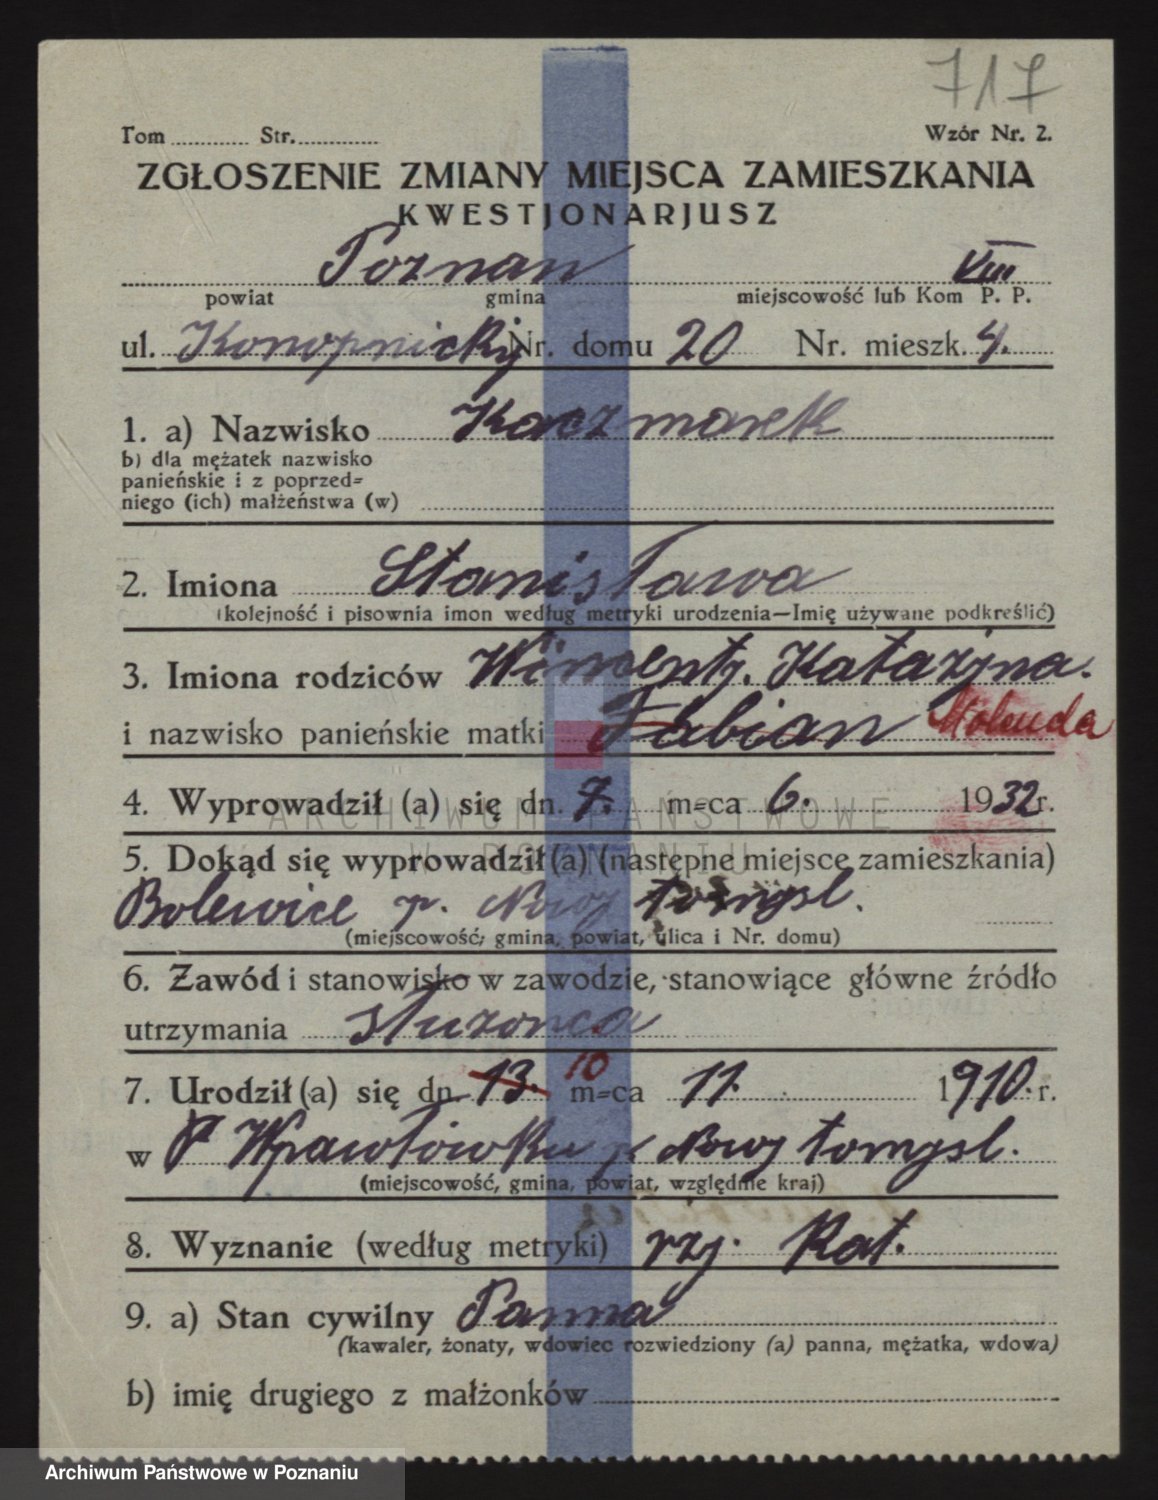 717
Tom ............ Str. ............
Wzór Nr. 2.
ZGŁOSZENIE ZMIANY MIEJSCA ZAMIESZKANIA
KWESTJONARJUSZ
Poznan VIII
powiat gmina miejscowość lub Kom P. P.
ul. Konopnickij Nr. domu 20 Nr. mieszk. 4.
1. a) Nazwisko Kaczmarek
b) dla mężatek nazwisko
panieńskie i z poprzed=
niego (ich) małżeństwa (w)
2. Imiona Stanisława
(kolejność i pisownia imon według metryki urodzenia—Imię używane podkreślić)
3. Imiona rodziców Wincenty. Katarzyna.
i nazwisko panieńskie matki Fabian Molenda
4. Wyprowadził (a) się dn. 7. m=ca 6. 1932 r.
ARCHIWUM PAŃSTWOWE
W POZNANIU
5. Dokąd się wyprowadził (a) (następne miejsce zamieszkania)
Bolewice p. Nowy tomysl.
(miejscowość, gmina, powiat, ulica i Nr. domu)
6. Zawód i stanowisko w zawodzie, stanowiące główne źródło
utrzymania służonca
7. Urodził (a) się dn. 13. 10 m=ca 11. 1910. r.
w Wpawłówku p. Nowy tomysl.
(miejscowość, gmina, powiat, względnie kraj)
8. Wyznanie (według metryki) rzy. Kat.
9. a) Stan cywilny Panna
(kawaler, żonaty, wdowiec rozwiedziony (a) panna, mężatka, wdowa)
b) imię drugiego z małżonków
Archiwum Państwowe w Poznaniu